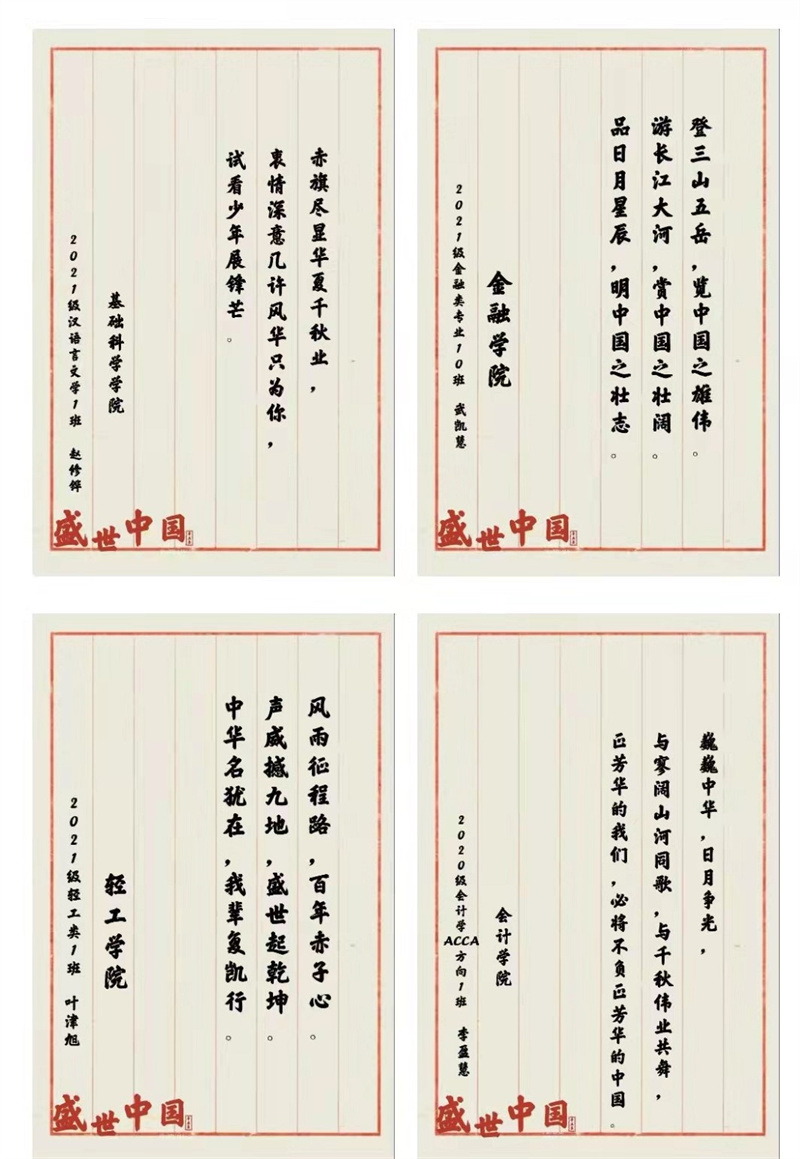 赤旗尽显华夏千秋业，
衷情深意几许风华只为你，
试看少年展锋芒。
基础科学学院
2021级汉语言文学1班 赵修铧
盛世中国
登三山五岳，览中国之雄伟。
游长江大河，赏中国之壮阔。
品日月星辰，明中国之壮志。
金融学院
2021级金融类专业10班 武凯慧
盛世中国
风雨征程路，百年赤子心。
声威撼九地，盛世起乾坤。
中华名犹在，我辈复凯行。
轻工学院
2021级轻工类1班 叶津旭
盛世中国
巍巍中华，日月争光，
与寥阔山河同歌，与千秋伟业共舞，
正芳华的我们，必将不负正芳华的中国。
会计学院
2020级会计学ACCA方向1班 李盈慧
盛世中国